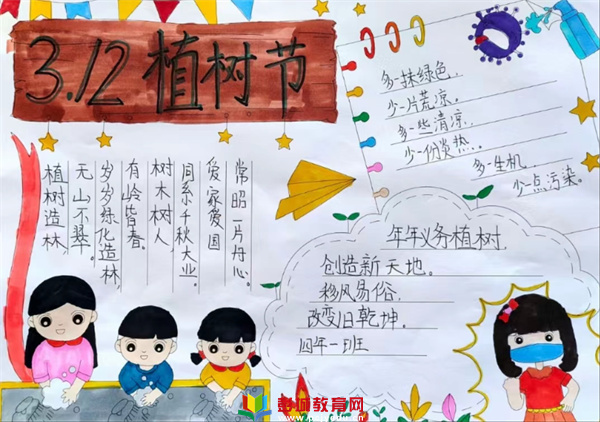 3.12植树节
植树造林,
无山不翠。
岁岁绿化造林,
有岭皆春。
树木树人
同系千秋大业。
爱家爱国
常昭一片丹心。
多一抹绿色、
少一片荒凉。
多一些清凉、
少一份炎热.
多一生机、
少一点污染。
年年义务植树,
创造新天地。
移风易俗,
改变旧乾坤.
四年一班
彭城教育网